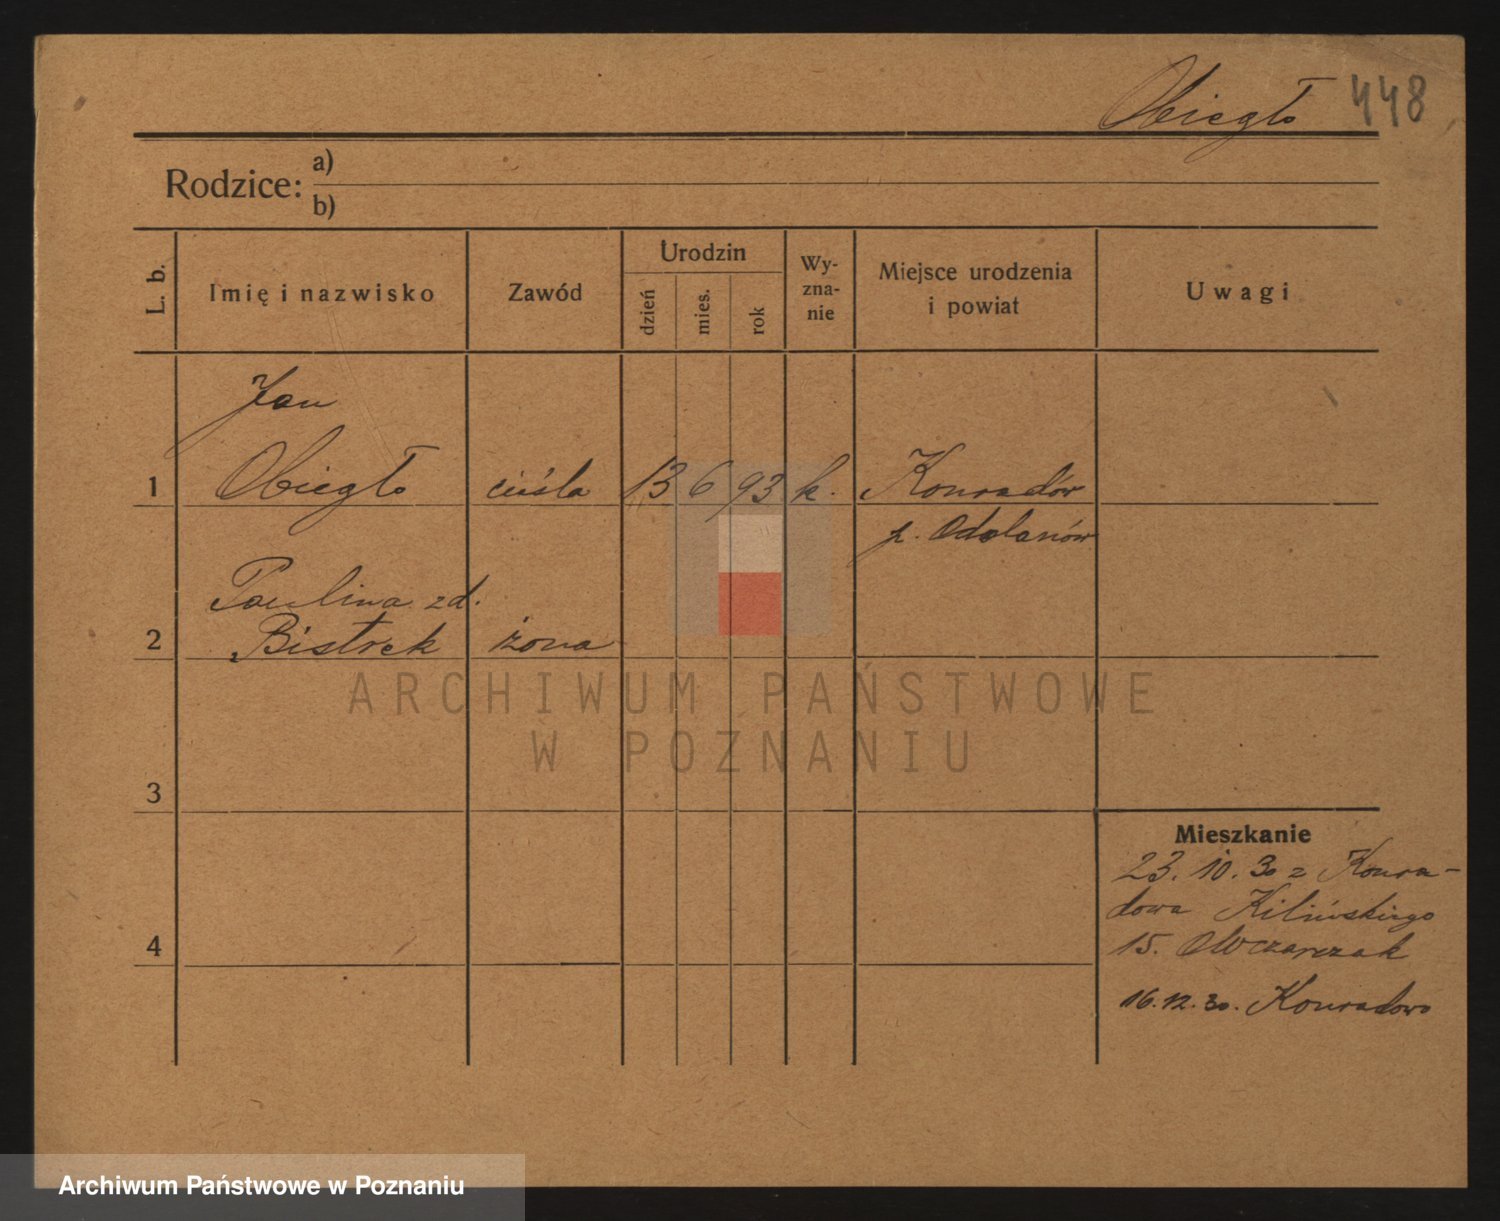 Obiegło 448
Rodzice: a)
b)
L. b.
Imię i nazwisko
Zawód
Urodzin
dzień
mies.
rok
Wy-
zna-
nie
Miejsce urodzenia
i powiat
Uwagi
Jan
1 Obiegło cieśla 13 6 93 k. Konradów
p. Odolanów
Paulina zd.
2 Bistrek żona
ARCHIWUM PAŃSTWOWE
W POZNANIU
3
Mieszkanie
23. 10. 30 z Konra-
dowa Kilińskiego
4
15. Owczarzak
16.12.30. Konradowo
Archiwum Państwowe w Poznaniu